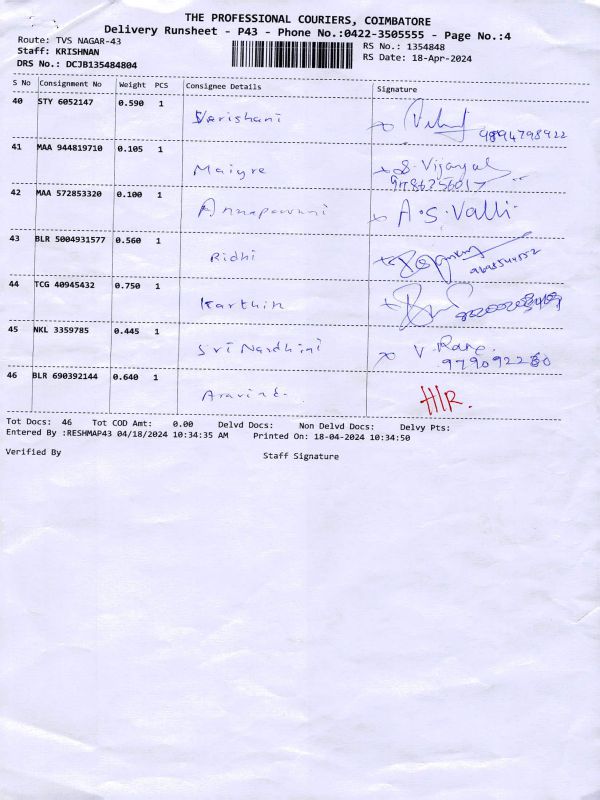 THE PROFESSIONAL COURIERS, COIMBATORE
Delivery Runsheet - P43 - Phone No.:0422-3505555 - Page No.:4
Route: TVS NAGAR-43 RS No.: 1354848
Staff: KRISHNAN RS Date: 18-Apr-2024
DRS No.: DCJB135484804
S No Consignment No Weight PCS Consignee Details Signature
40 STY 6052147 0.590 1 Varishani
9894798922
41 MAA 944819710 0.105 1 Maiyre S. Vijayal
9486256017
42 MAA 572853320 0.100 1 Annapoorni A.S.Valli
43 BLR 5004931577 0.560 1 Ridhi
44 TCG 40945432 0.750 1 Karthin
45 NKL 3359785 0.445 1 Sri Nandhini V Rane
9790922
46 BLR 690392144 0.640 1 Aravind. HR.
Tot Docs: 46 Tot COD Amt: 0.00 Delvd Docs: Non Delvd Docs: Delvy Pts:
Entered By :RESHMAP43 04/18/2024 10:34:35 AM Printed On: 18-04-2024 10:34:50
Verified By Staff Signature